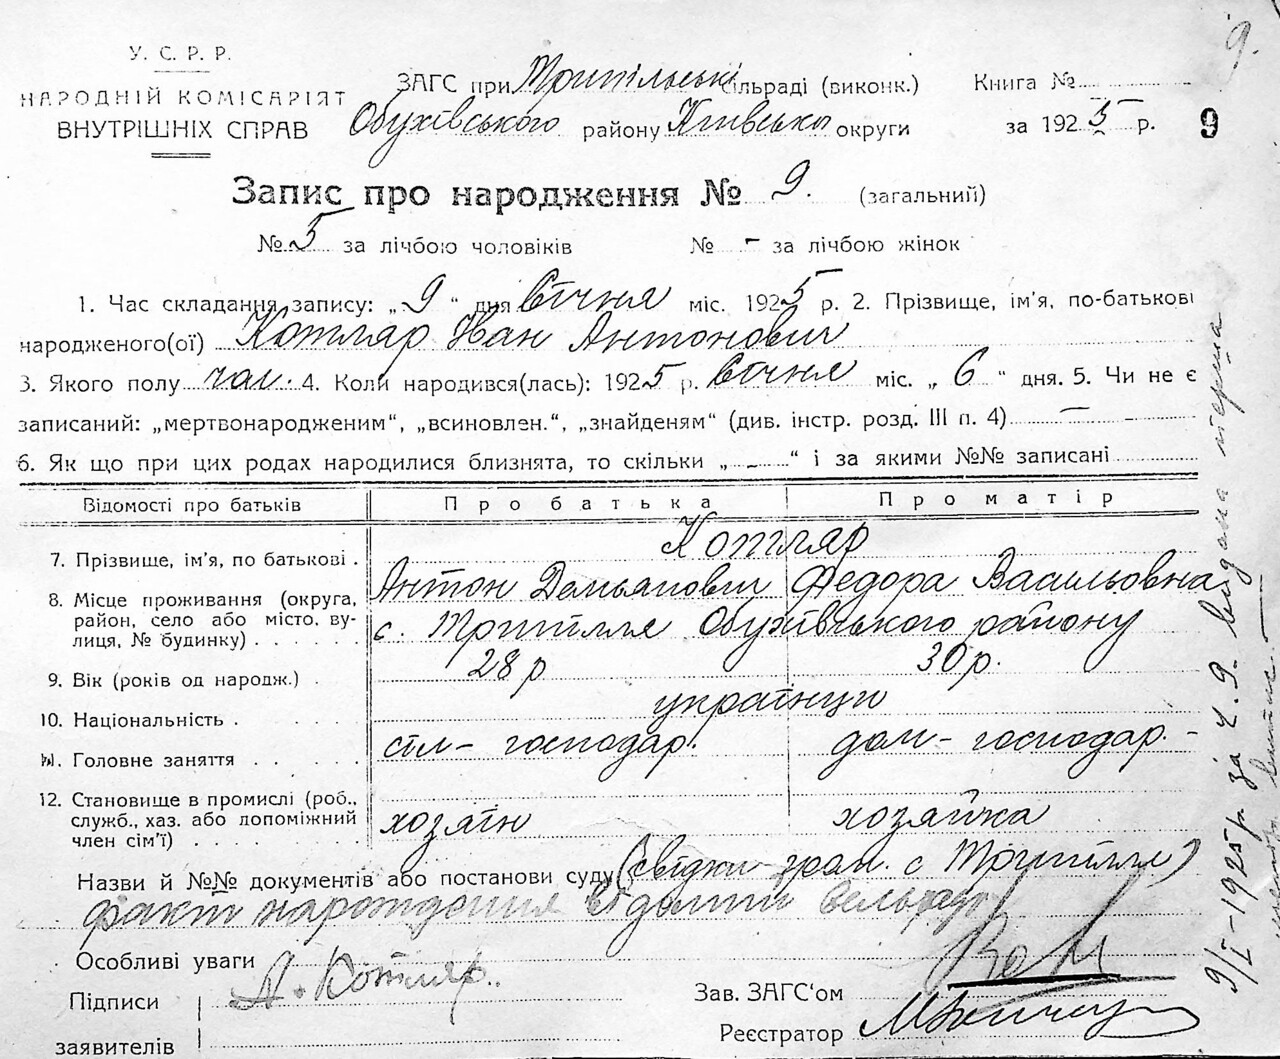 У. С. Р. Р.
НАРОДНІЙ КОМІСАРІЯТ
ВНУТРІШНІХ СПРАВ
ЗАГС при Трипільські сільраді (виконк.)
Обухівського району Київськ округи
Книга №
за 1925 р.
9.
9
Запис про народження № 9. (загальний)
№ 5 за лічбою чоловіків № - за лічбою жінок
1. Час складання запису: „ 9 " дня Січня міс. 1925 р. 2. Прізвище, ім'я, по-батькові
народженого(ої) Котляр Іван Антонович
3. Якого полу чол. 4. Коли народився(лась): 1925 р. Січня міс. „ 6 " дня. 5. Чи не є
записаний: „мертвонародженим", „всиновлен.", „знайденям" (див. інстр. розд. III п. 4) —
6. Як що при цих родах народилися близнята, то скільки „ - " і за якими №№ записані
Відомості про батьків Про батька Про матір
7. Прізвище, ім'я, по батькові . Котляр
Антон Демьянович Федора Васильовна
8. Місце проживання (округа, район, село або місто, вулиця, № будинку) с. Трипілля Обухівського району
9. Вік (років од народж.) . 28 р 30 р.
10. Національність . українци
11. Головне заняття сіл- господар. дом- господар. -
12. Становище в промислі (роб., служб., хаз. або допоміжний член сім'ї) хозяін хозяйка
Назви й №№ документів або постанови суду (свідки гром. с Трипілля)
факт народження
Особливі уваги
Підписи
заявителів
А. Котляр.
Зав. ЗАГС'ом
Реєстратор
9/I-1925 р за ч. 9. видана перша